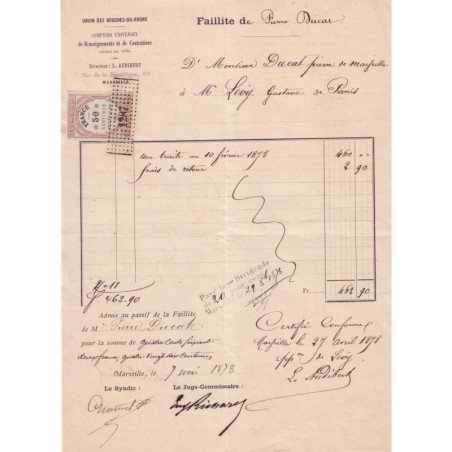 UNION DES BOUCHES-DU-RHONE
COMPTOIR UNIVERSEL
de Renseignements et de Contentieux
Directeur: L. AUDIBERT
MARSEILLE
Faillite de Pierre Ducat
Dt Monsieur Ducat pierre de Marseille
à Mr Levy Gustave de Paris
FRANCE
50
CENTIMES
1287
une traite au 10 février 1878 460 "
frais de retour 2 90
No 11
f. 462.90
Paye 1er Dividende
Fr. 462 90
Admis au passif de la Faillite
de M. Pierre Ducat
pour la somme de quatre cent soixante
deux francs, quatre vingt dix centimes
Marseille, le 7 mai 1878
Le Syndic: Le Juge-Commissaire:
Certifié Conforme
Marseille le 27 avril 1878
ppon de Levy
L. Audibert